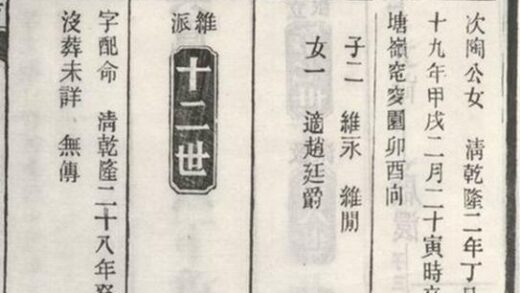 次陶公女 清乾隆二年丁巳
十九年甲戌二月二十寅時
塘嶺窀穸圍卯酉向
子二 維永 維閒
女一 適趙廷爵
維派
十二世
字配命 清乾隆二十八年癸
沒葬未詳 無傳